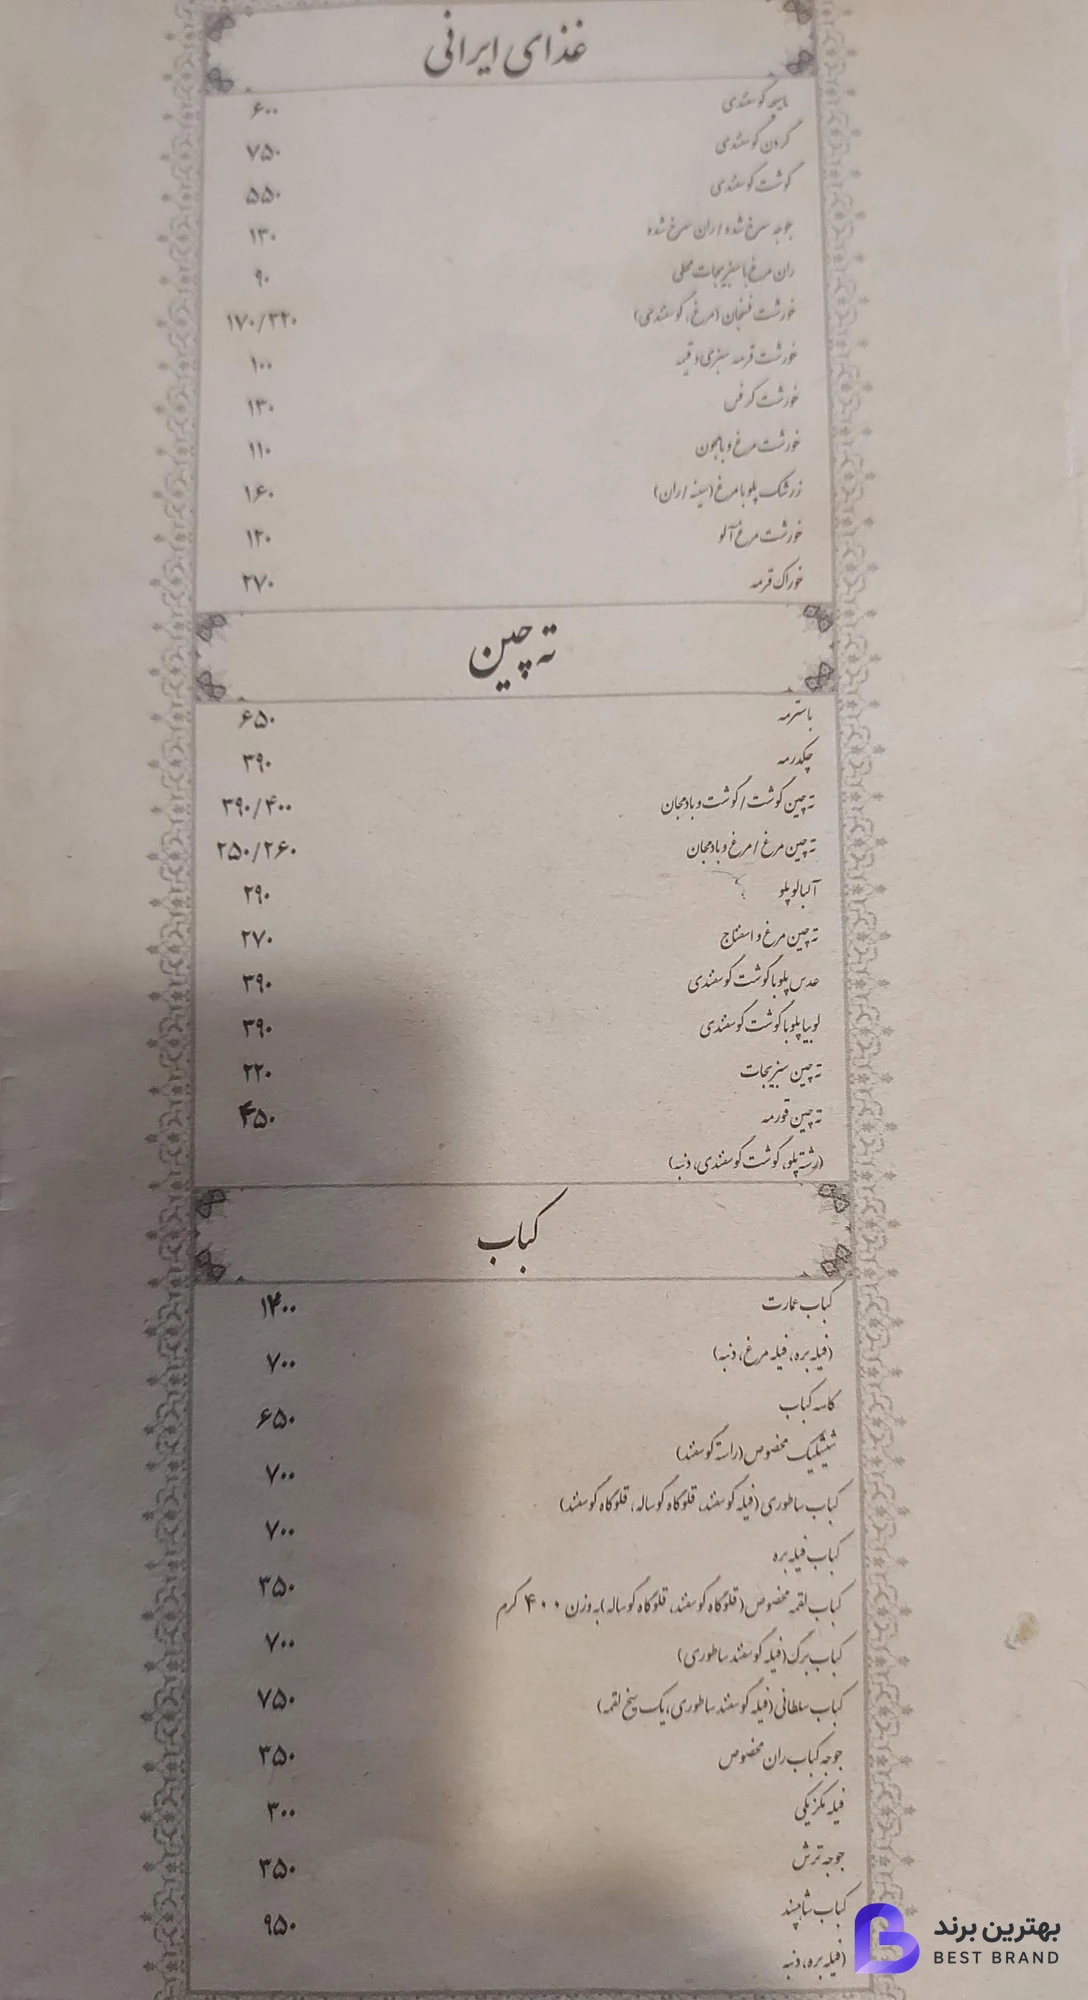 غذای ایرانی
ماهیچه گوسفندی ۶۰۰
گردن گوسفندی ۷۵۰
گوشت گوسفندی ۵۵۰
جوجه سرخ شده / ران سرخ شده ۱۳۰
ران مرغ با سبزیجات محلی ۹۰
خورشت فسنجان (مرغ، گوسفندی) ۱۷۰/۳۲۰
خورشت قرمه سبزی و قیمه ۱۰۰
خورشت کرفس ۱۳۰
خورشت مرغ و بامجون ۱۱۰
زرشک پلو با مرغ (سینه / ران) ۱۶۰
خورشت مرغ آلو ۱۲۰
خوراک قرمه ۲۷۰
ته چین
باسترمه ۶۵۰
چکدرمه ۳۹۰
ته چین گوشت / گوشت و بادمجان ۳۹۰/۴۰۰
ته چین مرغ / مرغ و بادمجان ۲۵۰/۲۶۰
آلبالو پلو ۲۹۰
ته چین مرغ و اسفناج ۲۷۰
عدس پلو با گوشت گوسفندی ۳۹۰
لوبیا پلو با گوشت گوسفندی ۳۹۰
ته چین سبزیجات ۲۲۰
ته چین قورمه ۴۵۰
(رشته پلو، گوشت گوسفندی، دنبه)
کباب
کباب عمارت ۱۴۰۰
(فیله بره، فیله مرغ، دنبه) ۷۰۰
کاسه کباب ۶۵۰
شیشلیک مخصوص (راسته گوسفند) ۷۰۰
کباب ساطوری (فیله گوسفند، قلوگاه گوساله، قلوگاه گوسفند) ۷۰۰
کباب فیله بره ۳۵۰
کباب لقمه مخصوص (قلوگاه گوسفند، قلوگاه گوساله) به وزن ۴۰۰ گرم ۷۰۰
کباب برگ (فیله گوسفند ساطوری) ۷۵۰
کباب سلطانی (فیله گوسفند ساطوری، یک سیخ لقمه) ۳۵۰
جوجه کباب ران مخصوص ۳۰۰
فیله مکزیکی ۳۵۰
جوجه ترش ۹۵۰
کباب شاهپسند
(فیله بره، دنبه
بهترین برند
BEST BRAND